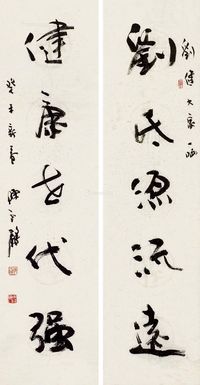 劉健大家一哂
劉氏源流遠
健康世代強
癸未新春